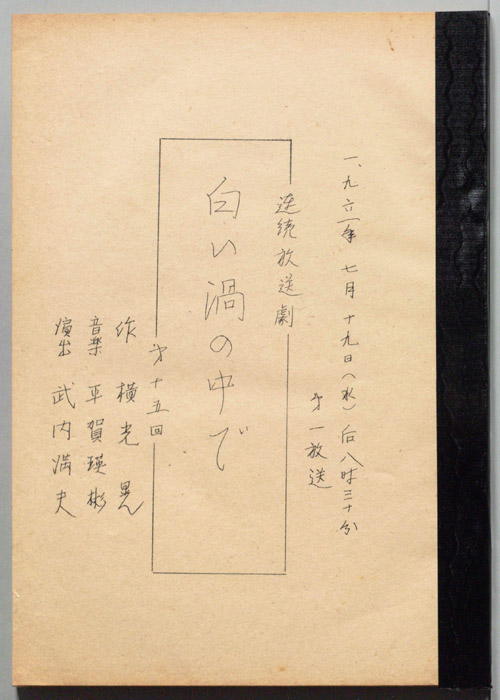 一、九六一年七月十九日(水)后八時三十分
才一放送
連続放送劇
白い渦の中で
才十五回
作 横光晃
音楽 平賀瑛彬
演出 武内満夫